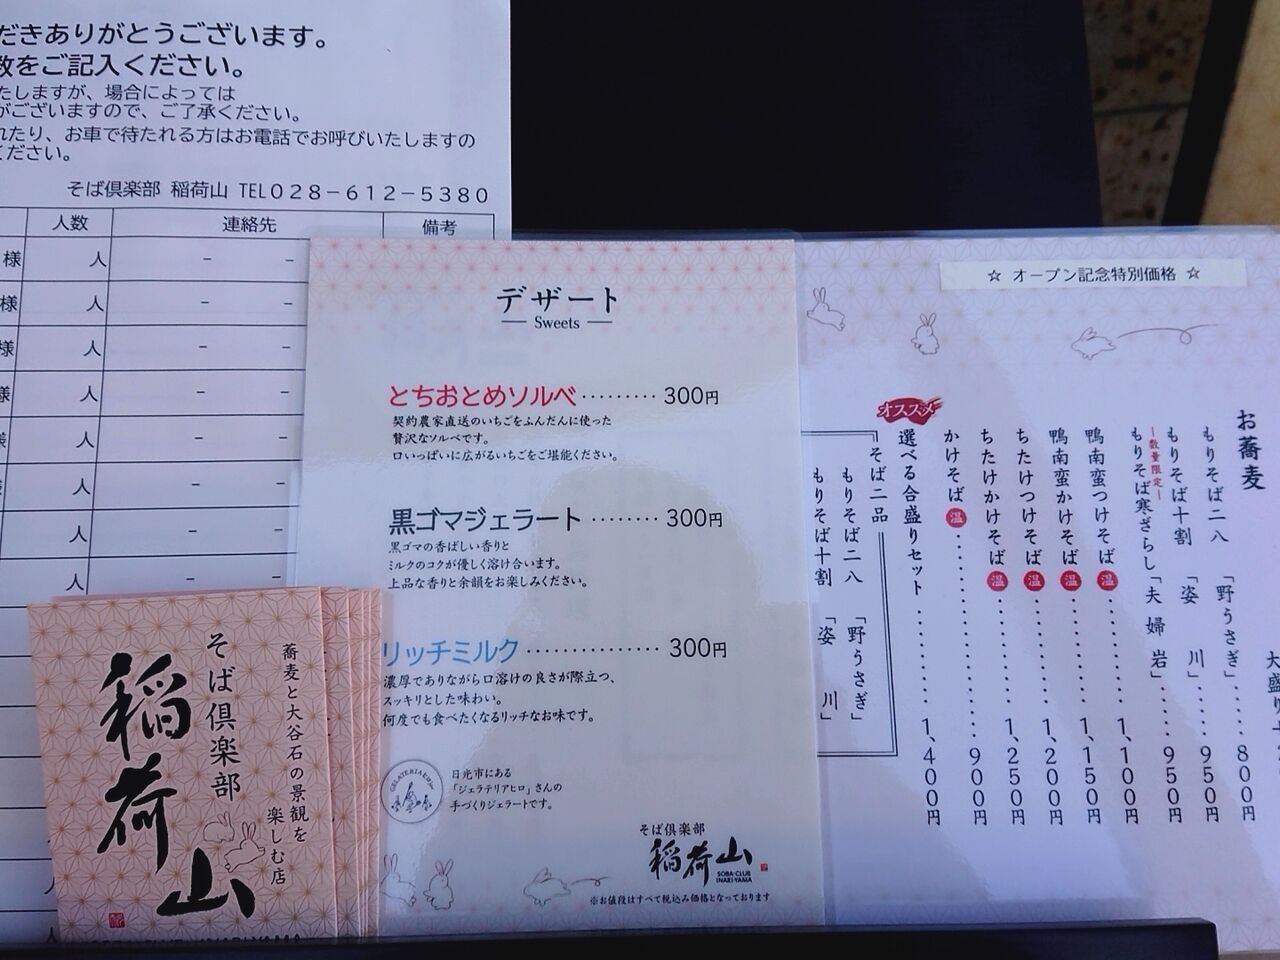 だきありがとうございます。
数をご記入ください。
たしますが、場合によっては
がございますので、ご了承ください。
れたり、お車で待たれる方はお電話でお呼びいたしますの
ください。
そば倶楽部 稲荷山 TEL028-612-5380
人数 連絡先 備考
様 人 - -
様 人 - -
様 人 - -
様 人 - -
様 人 - -
人 - -
人 - -
人 - -
デザート
Sweets
とちおとめソルベ ········· 300円
契約農家直送のいちごをふんだんに使った
贅沢なソルベです。
口いっぱいに広がるいちごをご堪能ください。
黒ゴマジェラート ········ 300円
黒ゴマの香ばしい香りと
ミルクのコクが優しく溶け合います。
上品な香りと余韻をお楽しみください。
リッチミルク ··············· 300円
濃厚でありながら口溶けの良さが際立つ、
スッキリとした味わい。
何度でも食べたくなるリッチなお味です。
GELATERIAヒロ
日光市にある
「ジェラテリアヒロ」さんの
手づくりジェラートです。
そば倶楽部
稲荷山
SOBA-CLUB
INARI-YAMA
※お値段はすべて税込み価格となっております
蕎麦と大谷石の景観を
楽しむ店
そば倶楽部
稲荷山
☆ オープン記念特別価格 ☆
お蕎麦
大盛り
もりそば二八 「野うさぎ」 800円
もりそば十割 「姿 川」 950円
―数量限定―
もりそば寒ざらし「夫婦岩」 950円
鴨南蛮つけそば 温 1,100円
鴨南蛮かけそば 温 1,150円
ちたけつけそば 温 1,200円
ちたけかけそば 温 1,250円
かけそば 温 900円
オススメ
選べる合盛りセット 1,400円
そば二品
もりそば二八 「野うさぎ」
もりそば十割 「姿 川」